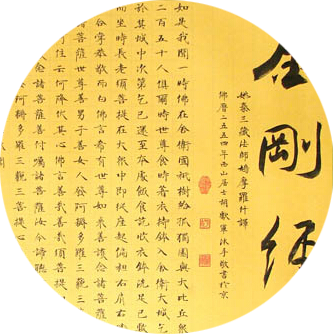 金剛經
姚秦三藏法師鳩摩羅什譯
佛曆二五五四年西山居士胡獻軍沐手敬書於京
如是我聞一時佛在舍衛國祇樹給孤獨園與大比丘眾
二百五十人俱爾時世尊食時著衣持鉢入舍衛
於其城中次第乞已還至本處飯食訖收衣鉢洗足已敷
而坐時長老須菩提在大眾中即從座起偏袒右肩右
合掌恭敬而白佛言希有世尊如來善護念諸菩薩
諸菩薩世尊善男子善女人發阿耨多羅三藐三
何住云何降伏其心佛言善哉善哉須菩提
念諸菩薩善付囑諸菩薩汝今諦聽
阿耨多羅三藐三菩提心